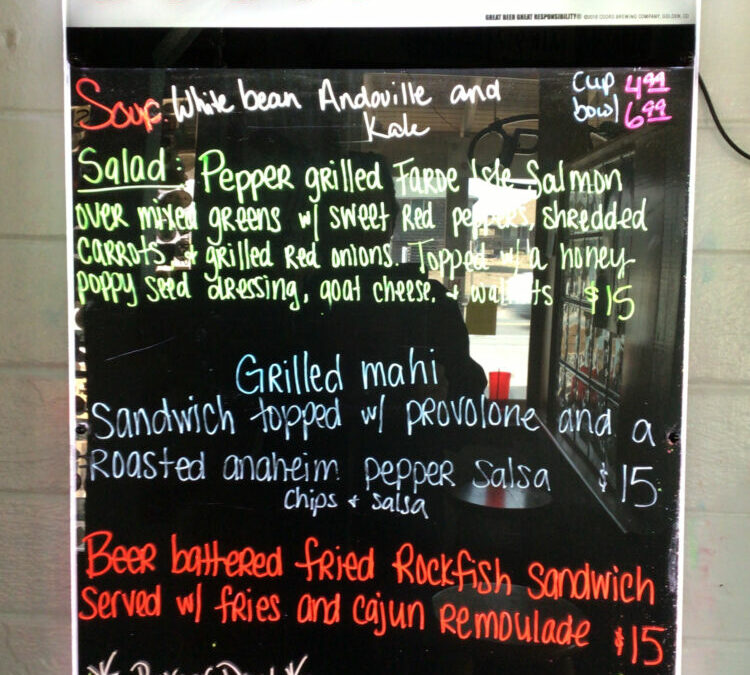 GREAT BEER GREAT RESPONSIBILITY® ©2018 COORS BREWING COMPANY, GOLDEN, CO
Soup: White bean Andouille and Kale
cup 4.99
bowl 6.99
Salad: Pepper grilled Faroe Isle Salmon
over mixed greens w/ sweet Red peppers, shredded
carrots, + grilled Red onions. Topped w/ a honey
poppy seed dressing, goat cheese, + walnuts $15
Grilled mahi
sandwich topped w/ provolone and a
Roasted anaheim pepper salsa $15
chips + salsa
Beer battered fried Rockfish sandwich
served w/ fries and cajun Remoulade $15